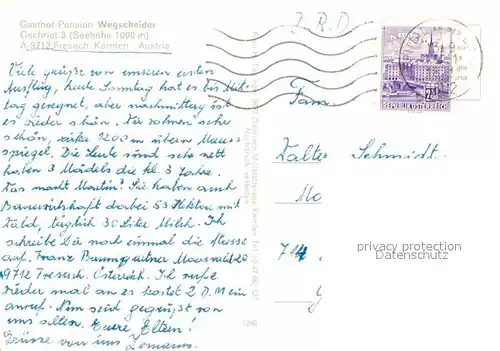 Gasthof Pension Wegscheider
Gschriet 3 (Seehöhe 1000 m)
A-9712 Fresach, Kärnten, Austria
Viele grüße von unseren ersten
Ausflug, heute Sonntag hat es bis Mit-
tag geregnet, aber nachmittag ist
es wieder schön. Wir wohnen sehr
schön, zirka 1200 m übern Meeres-
spiegel. Die Leute sind sehr nett
haben 3 Mädels die kl. 3 Jahre.
Was macht Martin? Sie haben auch
Bauwirtschaft dabei 53 Hektar mit
Wald, täglich 30 Liter Milch. Ich
schreibe Dir noch einmal die Adresse
auf. Franz Baumgartner Moosrait 20
9712 Fresach. Österreich. Ich rufe
wieder mal an es kostet 2 D.M ein
anruf. Nun seid gegrüßt von
uns allen. Euere Eltern!
Grüsse von uns
B.R.D
REPUBLIK ÖSTERREICH
Fam.
Walter Schmidt.
Mo
714
privacy protection
Datenschutz